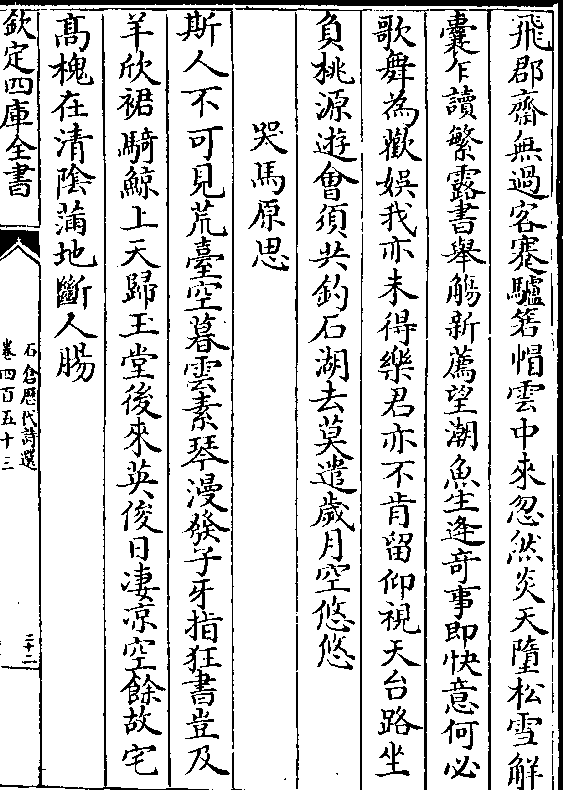 飛郡齋無過客蹇驢箬帽雲中來忽然炎天墮松雪解
囊乍讀繁露書舉觴新薦望潮魚生逢奇事即快意何必
歌舞為歡娛我亦未得樂君亦不肯留仰視天台路坐
負桃源遊會須共釣石湖去莫遣歲月空悠悠
哭馬原思
斯人不可見荒臺空暮雲素琴漫發子牙指狂書豈及
羊欣裙騎鯨上天歸玉堂後來英俊日凄凉空餘故宅
髙槐在清陰蒲地斷人腸
欽定四庫全書
石倉歷代詩選
卷四百五十三
三十二